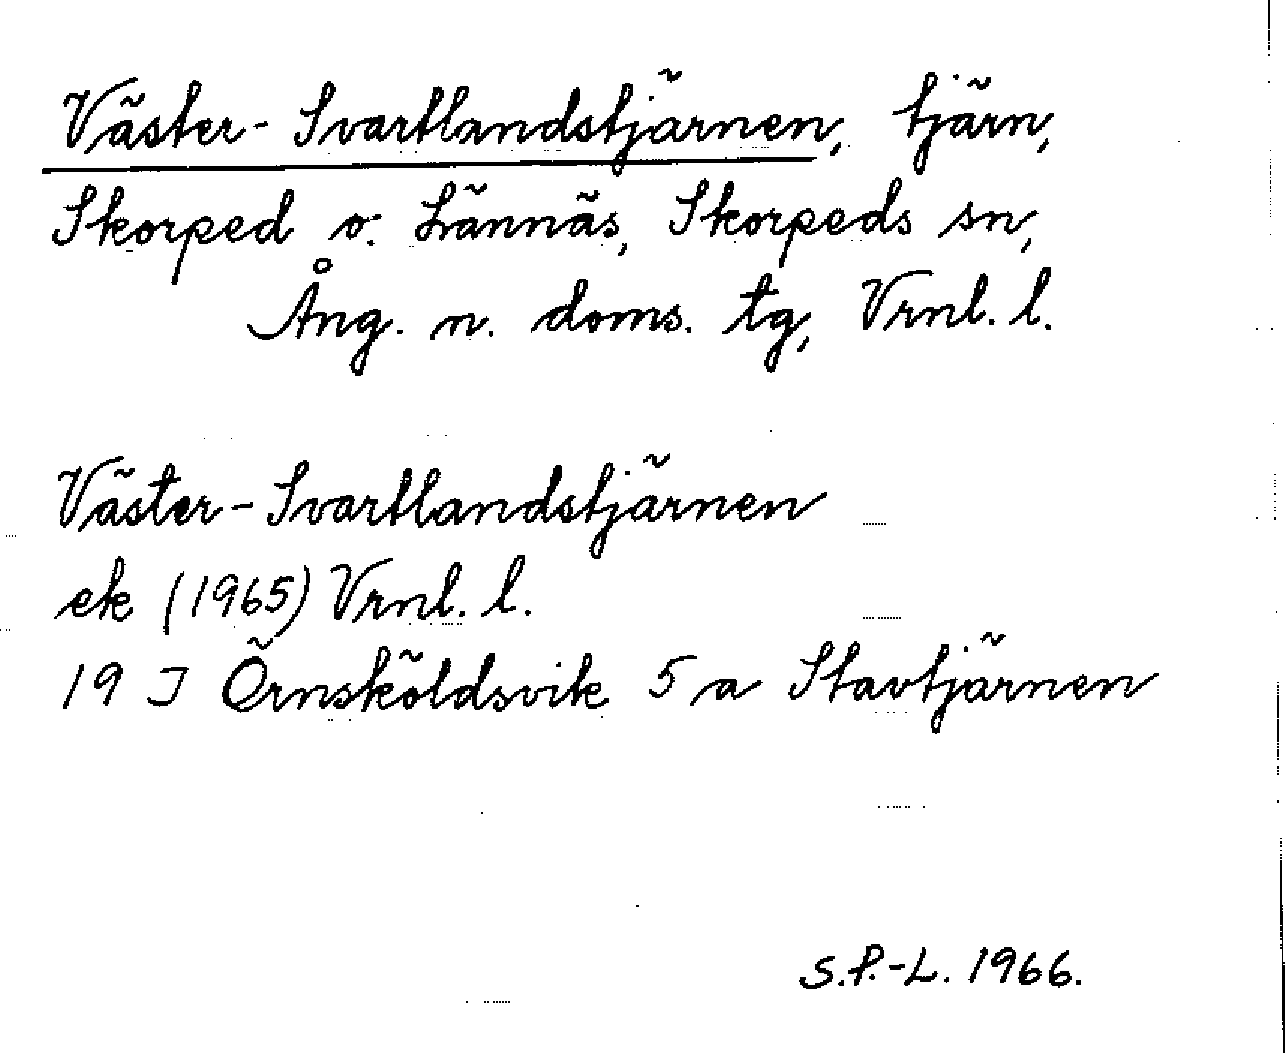 Väster-Svartlandstjärnen, tjärn,
Skorped o. Lännäs, Skorpeds sn,
Ång. n. doms. tg, Vrnl. l.
Väster-Svartlandstjärnen
ek (1965) Vrnl. l.
19 J Örnsköldsvik 5 a Stavtjärnen
S.P.-L. 1966.